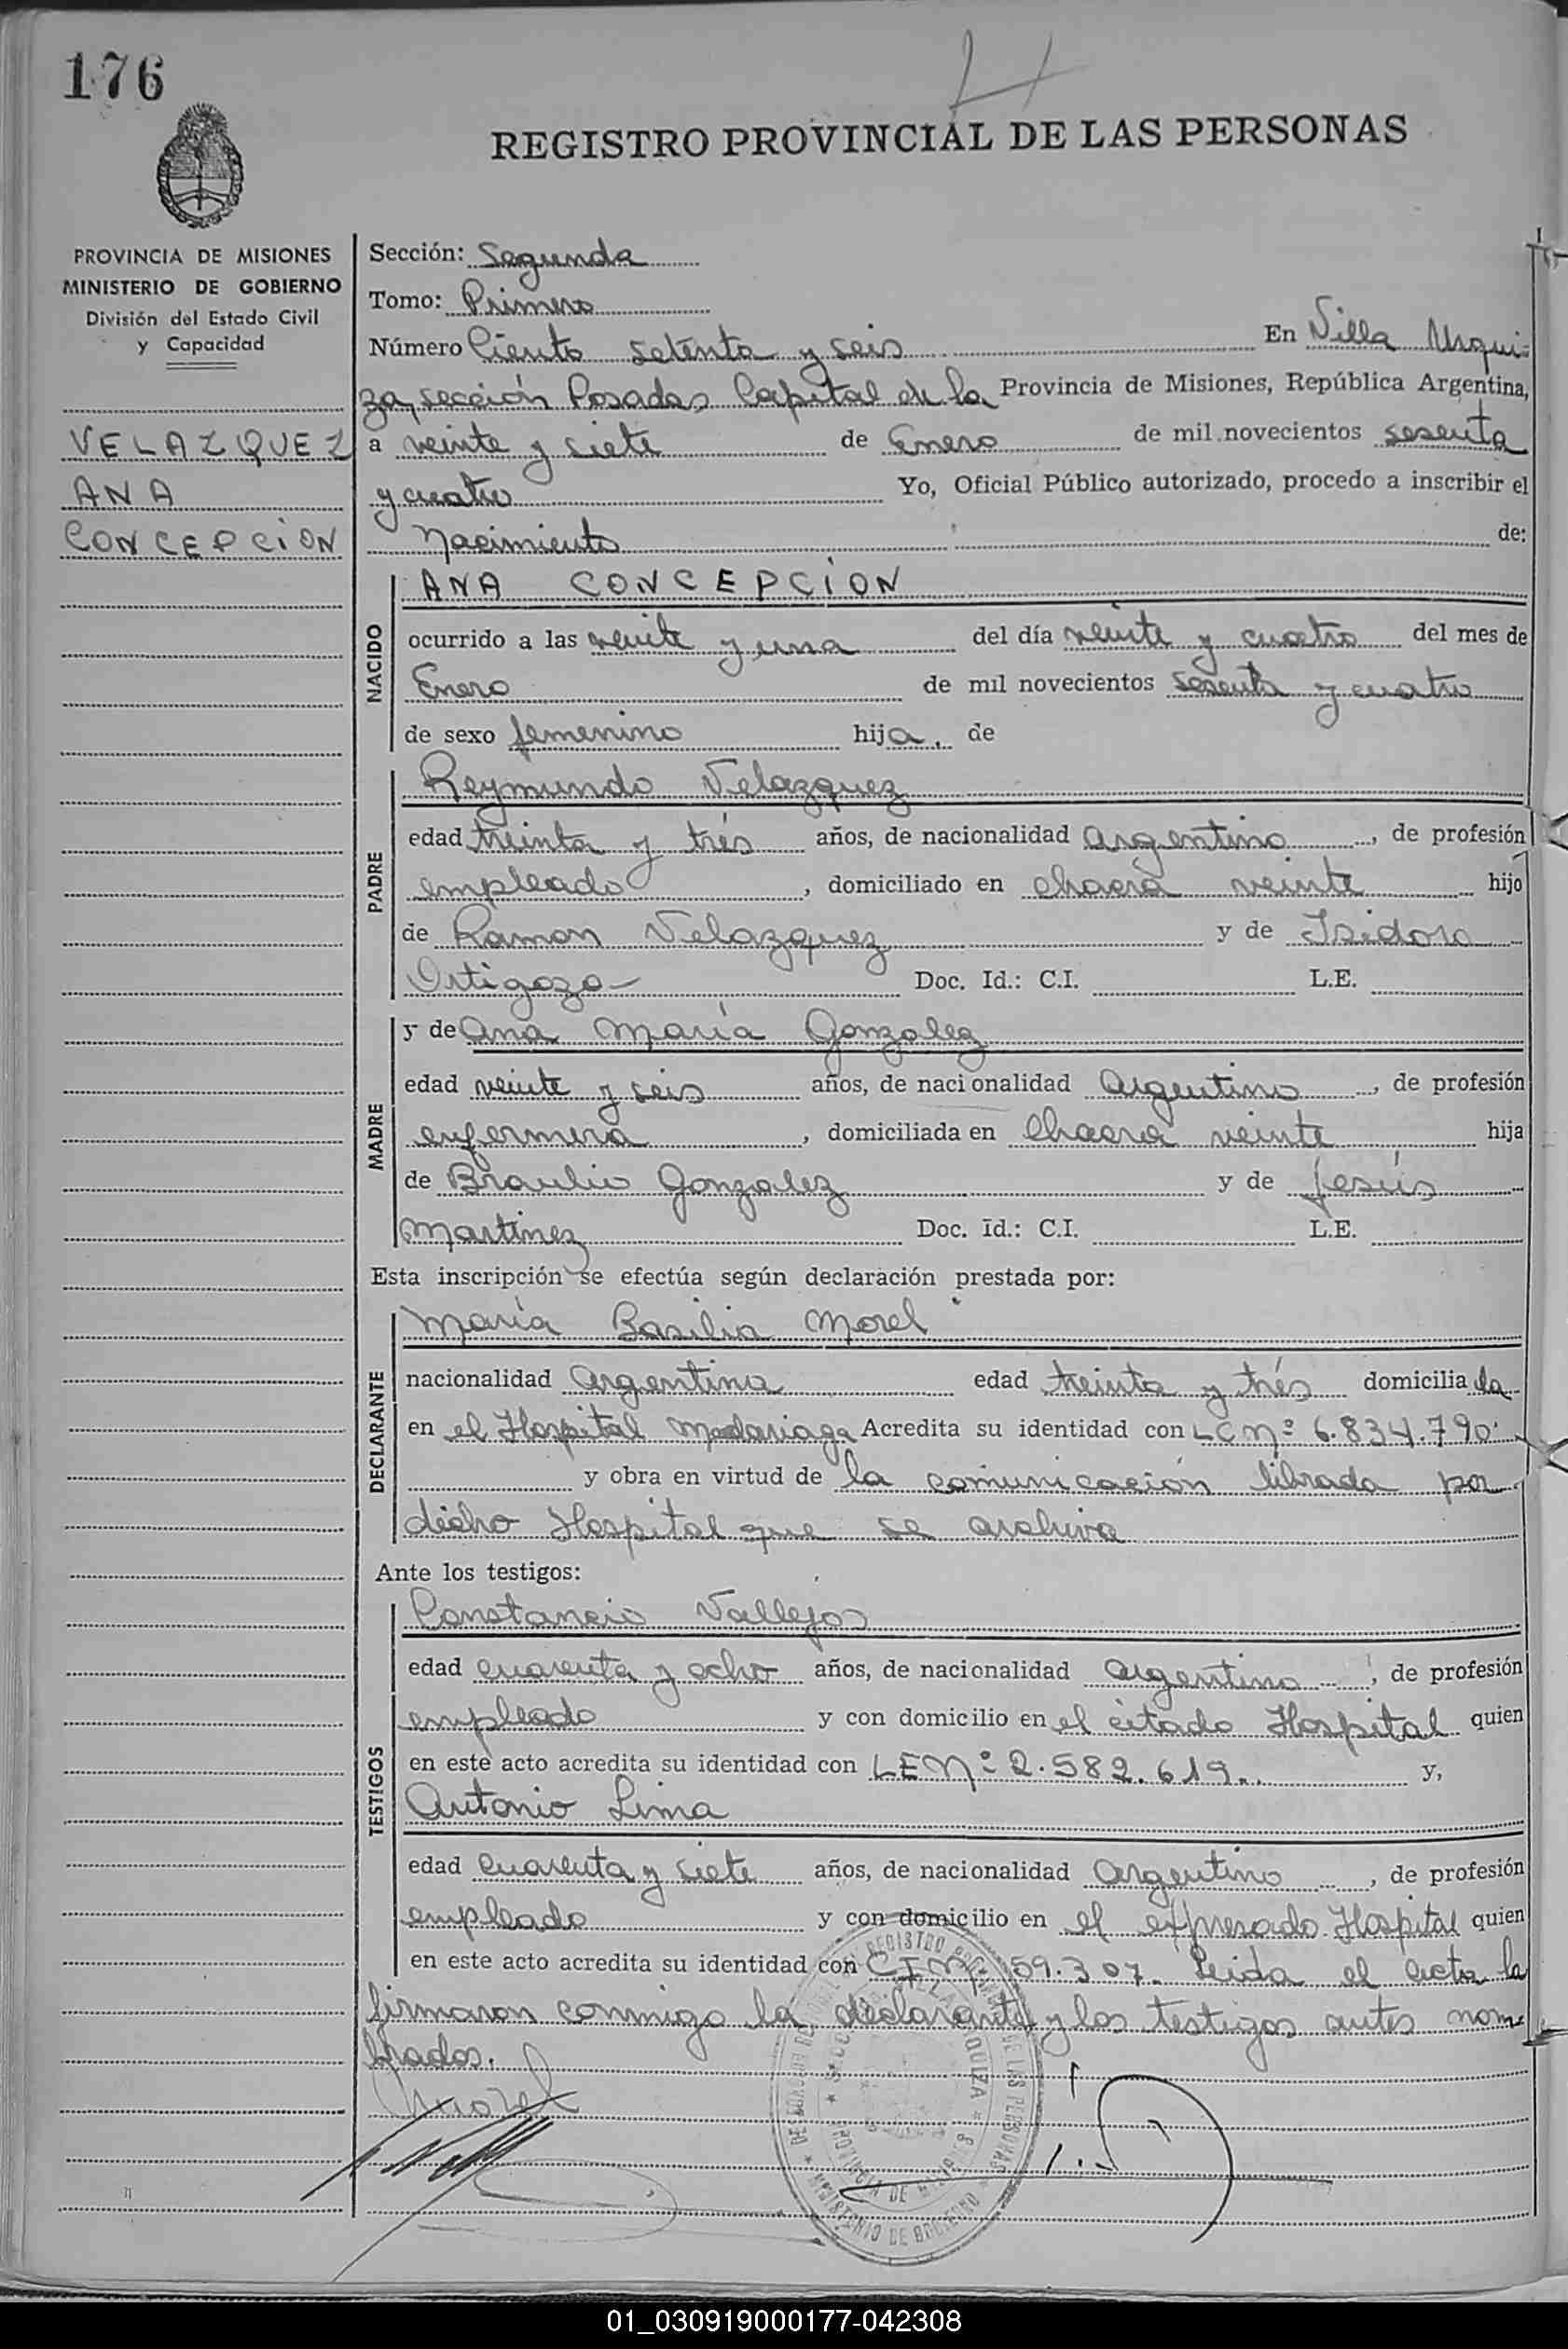 176
REGISTRO PROVINCIAL DE LAS PERSONAS
PROVINCIA DE MISIONES
MINISTERIO DE GOBIERNO
División del Estado Civil
y Capacidad
VELAZQUEZ
ANA
CONCEPCIÓN
Sección: Segunda
Tomo: Primero
Número Ciento setenta y seis En Villa Urqui-
za, sección Posadas Capital de la Provincia de Misiones, República Argentina,
a veinte y siete de Enero de mil novecientos sesenta
y cuatro Yo, Oficial Público autorizado, procedo a inscribir el
Nacimiento de:
NACIDO
ANA CONCEPCIÓN
ocurrido a las veinte y una del día veinte y cuatro del mes de
Enero de mil novecientos sesenta y cuatro
de sexo femenino hija, de
PADRE
Reymundo Velazquez
edad treinta y trés años, de nacionalidad argentino, de profesión
empleado, domiciliado en chacra veinte hijo
de Ramon Velazquez y de Isidora
Ortigoza- Doc. Id.: C.I. L.E.
MADRE
y de Ana María Gonzalez
edad veinte y seis años, de nacionalidad argentina, de profesión
enfermera, domiciliada en Chacra veinte hija
de Braulio Gonzalez y de Jesús
Martinez Doc. Id.: C.I. L.E.
Esta inscripción se efectúa según declaración prestada por:
DECLARANTE
María Basilia Morel
nacionalidad argentina edad treinta y trés domiciliada
en el Hospital Madariaga Acredita su identidad con LC Nº 6.834.790
y obra en virtud de la comunicación librada por
dicho Hospital que se archiva
Ante los testigos:
TESTIGOS
Constancio Vallejos
edad cuarenta y ocho años, de nacionalidad argentino, de profesión
empleado y con domicilio en el citado Hospital quien
en este acto acredita su identidad con LE Nº 2.582.619. y,
Antonio Lima
edad cuarenta y siete años, de nacionalidad argentino, de profesión
empleado y con domicilio en el expresado Hospital quien
en este acto acredita su identidad con CI Nº 59.307. Leida el acta la
firmaron conmigo la declarante y los testigos antes nom-
brados.
Morel
MINISTERIO DE GOBIERNO
01_030919000177-042308